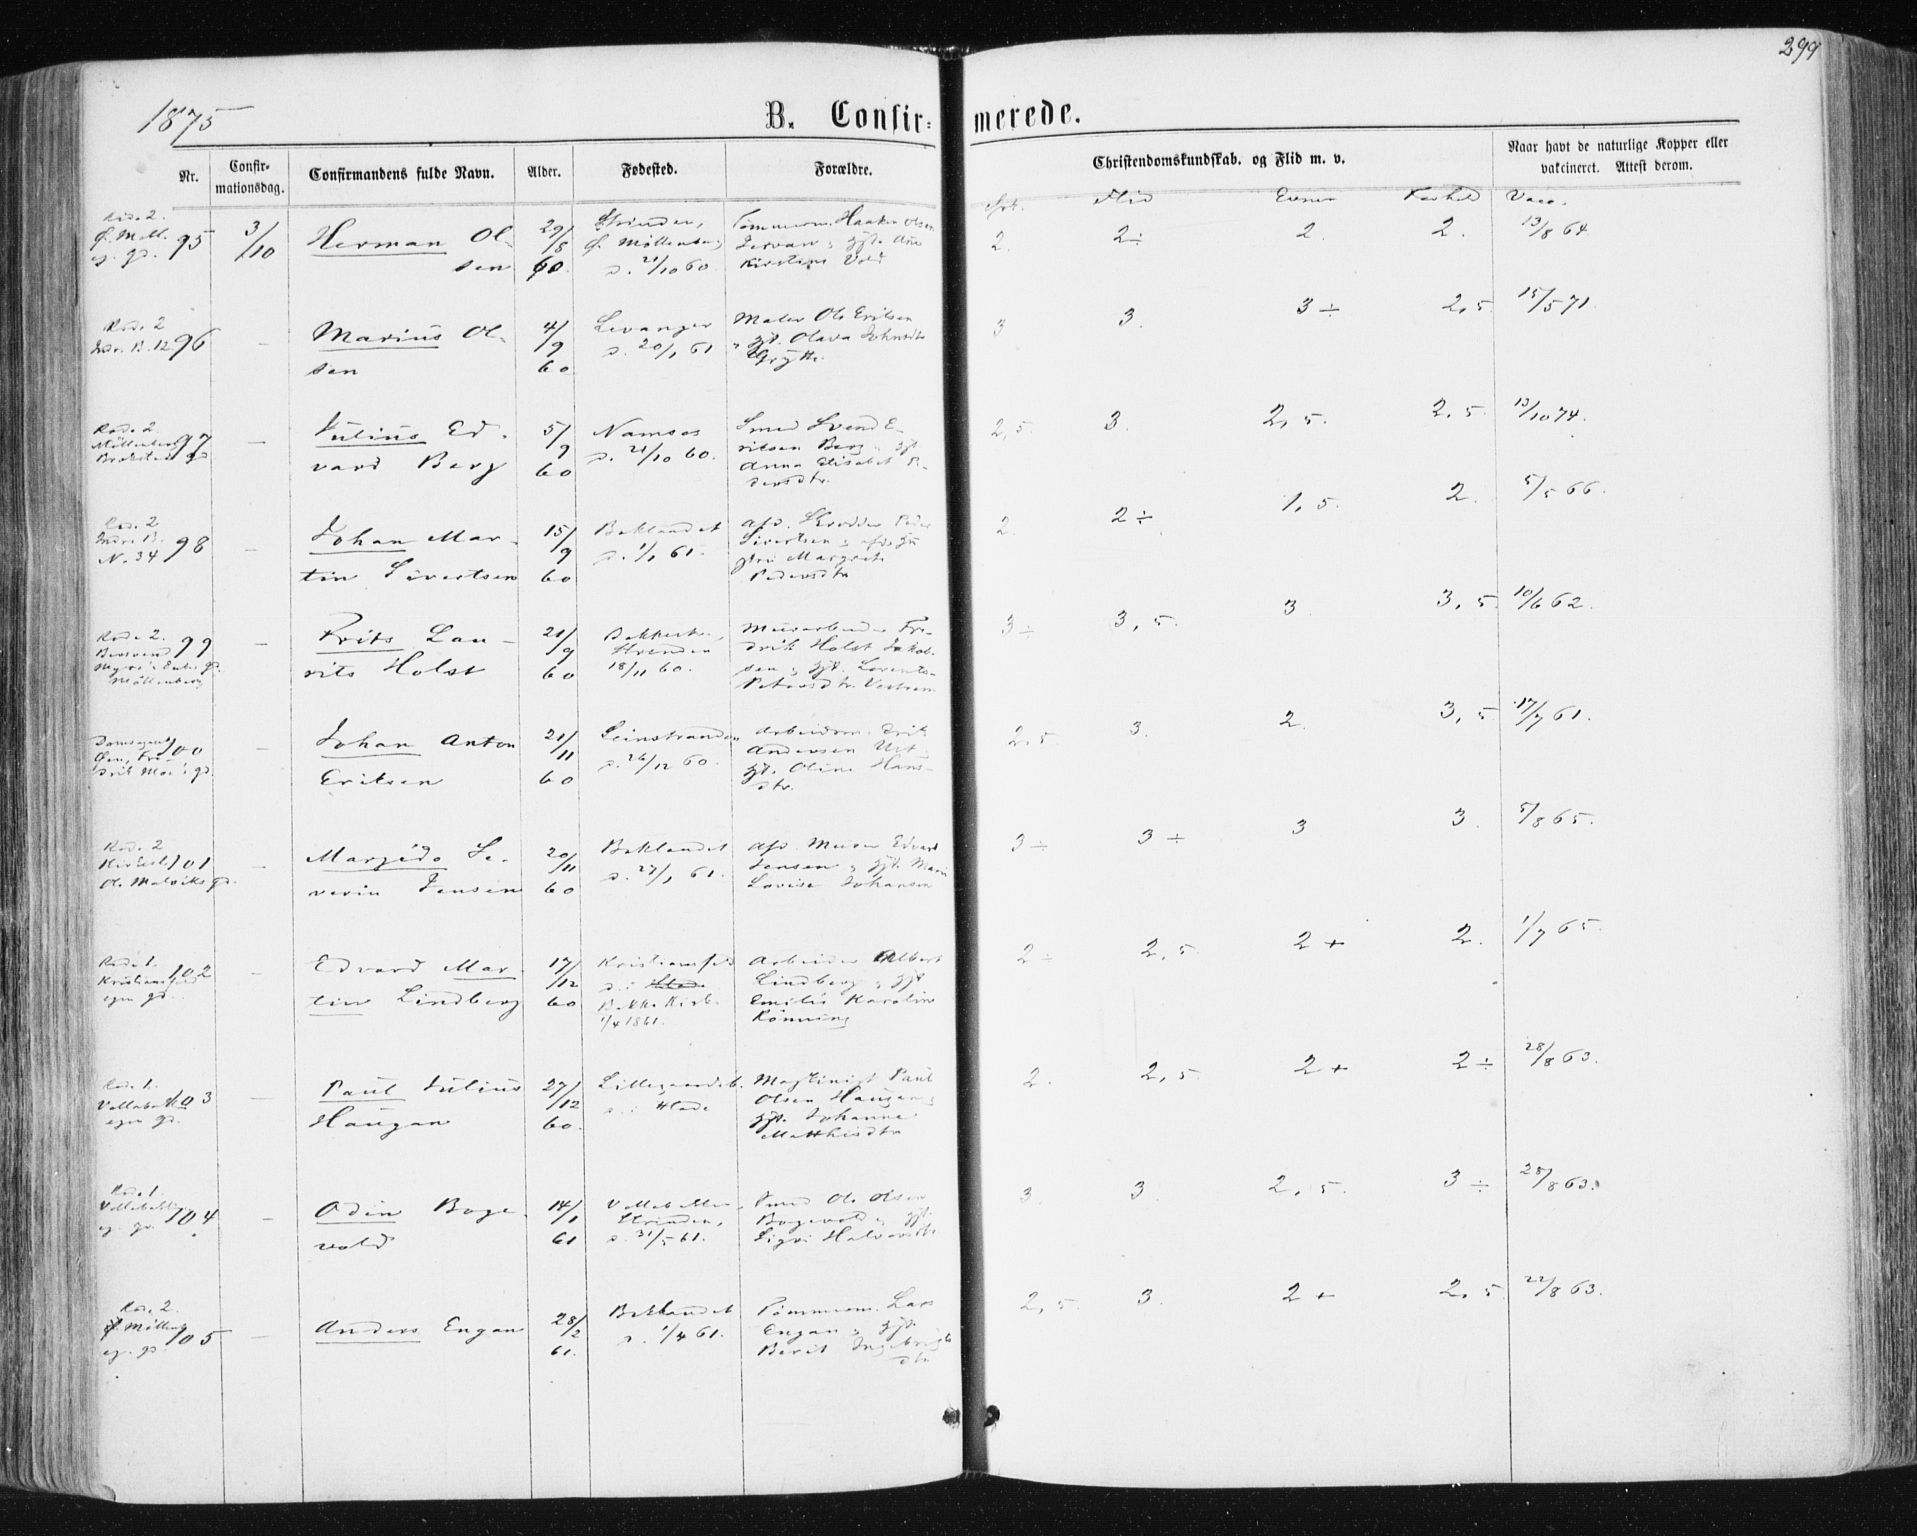 299
1875
B. Confir- merede.
Nr. Confir- mationsdag. Confirmandens fulde Navn. Alder. Fødested. Forældre. Christendomskundskab. og Flid m. v. Naar havt de naturlige Kopper eller
vakcineret. Attest derom.
Flid Evner Forhold Vacc.
Rode 2.
Ø. Møll.
eg. gd. 95 3/10 Herman Ol-
sen 29/8 60 Strinden,
Ø. Møllenberg
d. 21/10 60. Tømmerm. Haaken Olsen
Kirstine Vold 2. 2÷ 2. 2. 13/8 64
Rode 2
Indr. B. 12 96 – Marius Ol-
sen 4/9 60 Levanger
d. 20/1 61 Maler Ole Eriksen
gft. Olava Johnsdtr
Grytte. 3 3. 3÷ 2,5 15/5 71.
Rode 2
97 – Julius Ed-
vard Berg 5/9 60 Namsos
d. 21/10 60. Smed Svend E-
riksen Berg gft
Anna Elisabet Pe-
dersdtr. 2,5 3. 2,5. 2,5. 13/10 74.
Rode 2
Indr. B.
N. 34 98 – Johan Mar-
tin Sivertsen 15/9 60 Baklandet
d. 1/1 61. afd. Skrædder Peder
Sivertsen
Margrete
Pedersdtr 2. 2÷ 1,5. 2. 5/5 66.
Rode 2.
99 – Frits Lau-
rits Holst 21/9 60
Strinden
18/11 60. Murarbeider Fre-
drik Holst Jakob-
sen gft. Lorents-
Petersdtr. 3÷ 3,5. 3. 3,5. 10/6 62.
100 – Johan Anton
Eriksen 21/11 60 Leinstranden
d. 26/12 60. Arbeidsm. Erik
Andersen Ust
gft. Oline Hans-
dtr. 2,5 3. 2. 3,5 17/7 61.
Rode 2
101 – Se-
verin Jensen 20/11 60 Baklandet
d. 27/1 61. afd. Murer Edvard
Jensen gft. Marie
Lovise Johansen 3÷ 3÷ 3 3. 5/8 65.
Rode 1.
Kristiansfeld
egen gd. 102 – Edvard Mar-
tin Lindberg 17/12 60 Kristiansfeld
d. i Hlade
Bakke Kirke
1/4 1861. Arbeider Albert
Lindberg gft
Emilie Karoline
Rønning 2÷ 2,5. 2+ 2. 1/7 65.
Rode 1.
egen gd. 103 – Paul Julius
Haugan 27/12 60.
d. i Hlade Maskinist Paul
Olsen Haugan
gft. Johanna
Matthisdtr 2. 2,5 2+ 2÷ 28/8 63.
Rode 1.
eg. gd. 104 – Odin Boge-
vold 14/1 61
Strinden,
d. 31/5 61. Smed Ole Olsen
Bogevold gft.
Sigri Halvorsdtr 3. 3. 2,5. 3÷ 25/8 63.
Rode 2.
Ø. Møllenb.
eg. gd. 105 – Anders Engan 28/2 61. Baklandet
d. 1/4 61. Tømmerm. Lars
Engan gft.
Berit Ingebrigts
dtr 2,5. 3. 2+ 2,5 22/8 63.